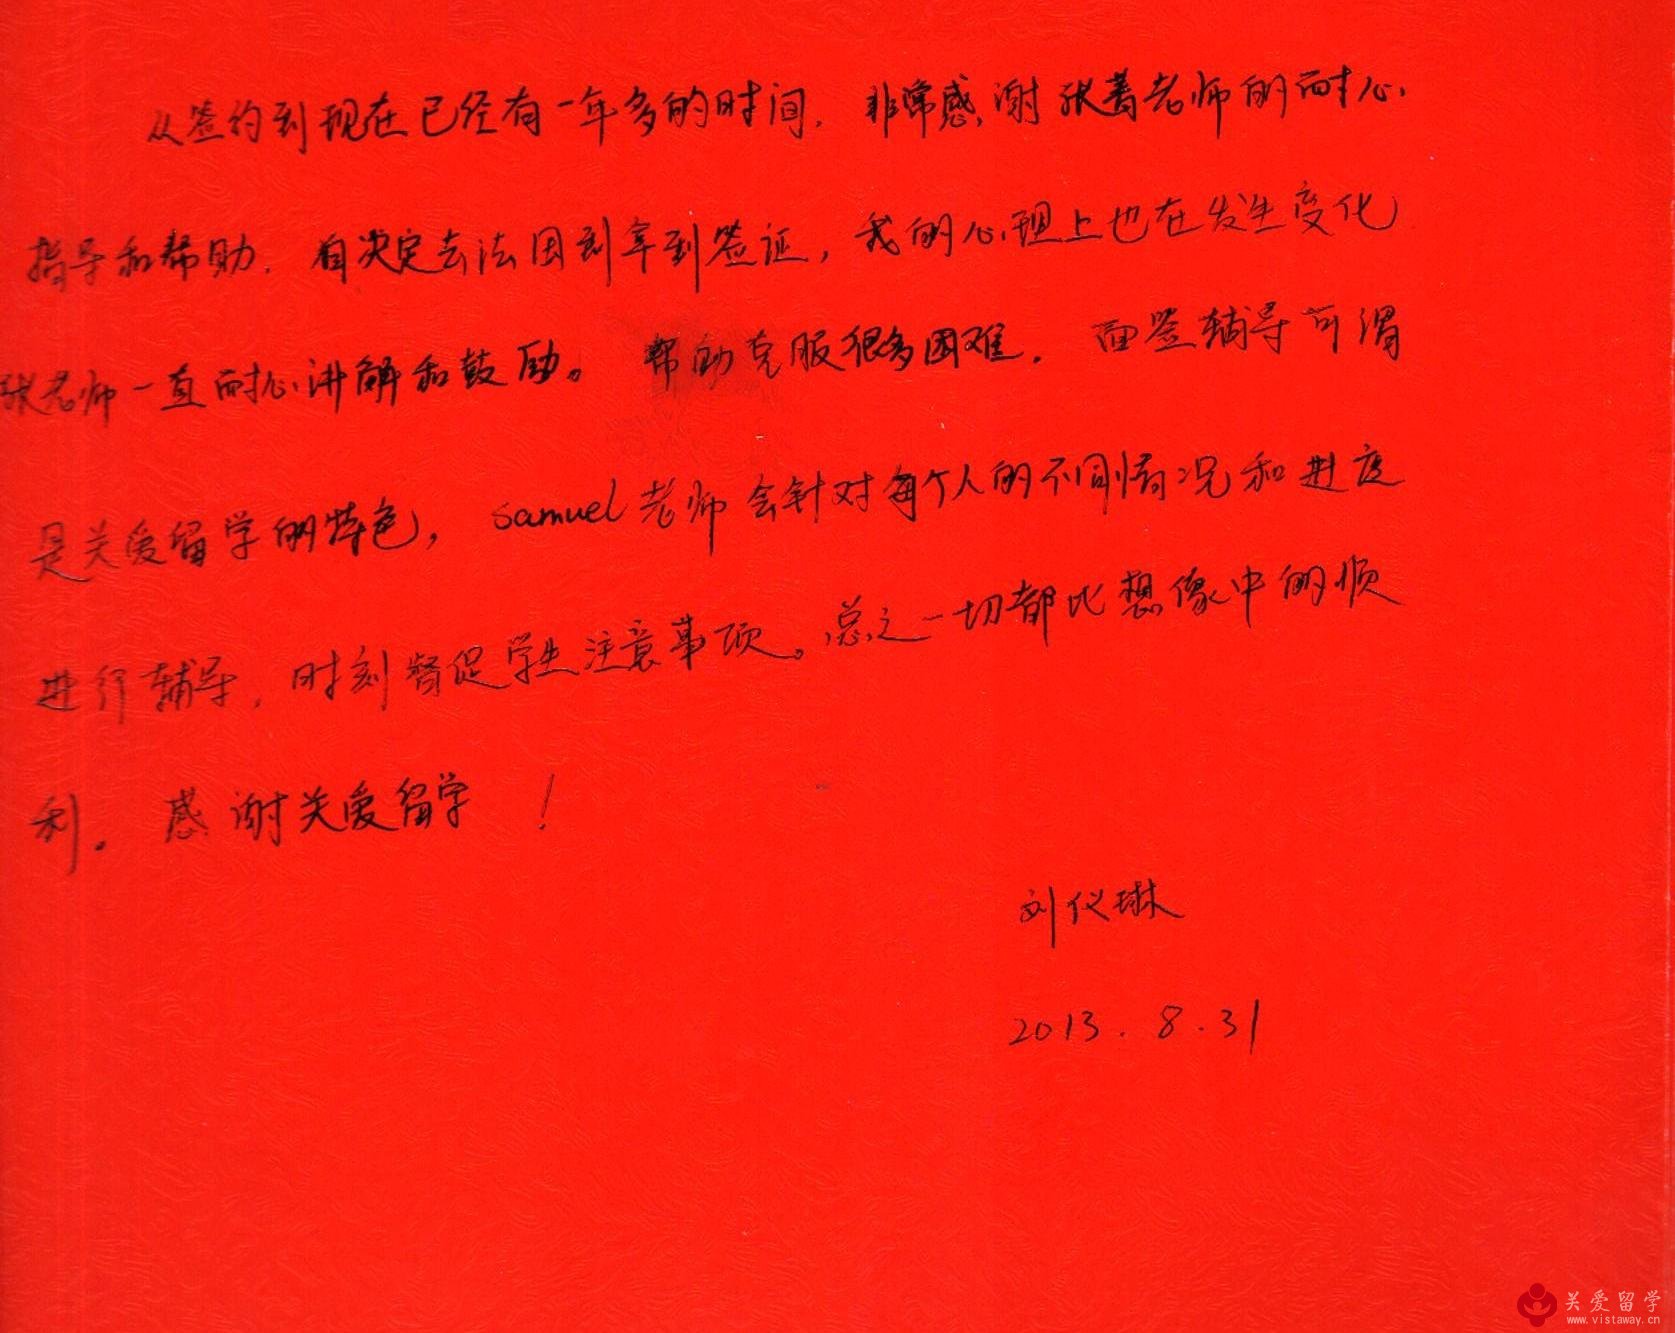 从签约到现在已经有一年多的时间，非常感谢张菁老师的耐心、
指导和帮助．自决定去法国到拿到签证，我的心理上也在发生变化
张老师一直耐心讲解和鼓励。帮助克服很多困难．面签辅导可谓
是关爱留学的特色，samuel老师会针对每个人的不同情况和进度
进行辅导，时刻督促学生注意事项。总之一切都比想像中的顺
利。感谢关爱留学！
刘仪琳
2013.8.31
关爱留学
www.vistaway.cn